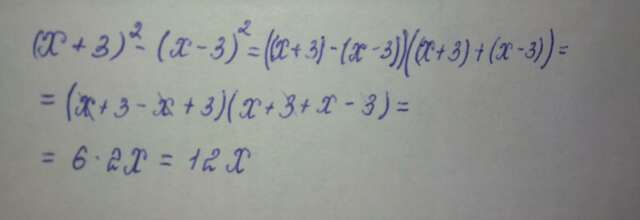 (x+3)² - (x-3)² = ((x+3)-(x-3))((x+3)+(x-3)) =
= (x+3-x+3)(x+3+x-3) =
= 6·2x = 12x